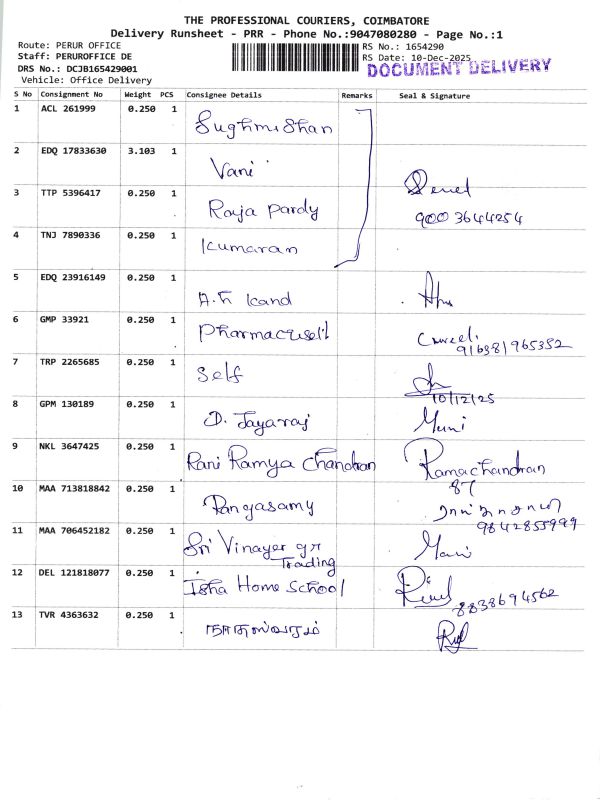 THE PROFESSIONAL COURIERS, COIMBATORE
Delivery Runsheet - PRR - Phone No.:9047080280 - Page No.:1
Route: PERUR OFFICE
Staff: PERUROFFICE DE
DRS No.: DCJB165429001
Vehicle: Office Delivery
RS No.: 1654290
RS Date: 10-Dec-2025
DOCUMENT DELIVERY
S No Consignment No Weight PCS Consignee Details Remarks Seal & Signature
1 ACL 261999 0.250 1
2 EDQ 17833630 3.103 1 Vani
3 TTP 5396417 0.250 1 Raja Pardy
9003644254
4 TNJ 7890336 0.250 1 Kumaran
5 EDQ 23916149 0.250 1 A.h Kand
6 GMP 33921 0.250 1
916381965352
7 TRP 2265685 0.250 1 Self
10/12/25
8 GPM 130189 0.250 1 D. Jayaraj Muni
9 NKL 3647425 0.250 1 Rani Ramya Chandran Ramachandran
87
10 MAA 713818842 0.250 1 Rangasamy
9842855999
11 MAA 706452182 0.250 1 Sri Vinayer gr Mani
Trading
12 DEL 121818077 0.250 1 Isha Home School
8838694562
13 TVR 4363632 0.250 1 நாதஸ்வரம்